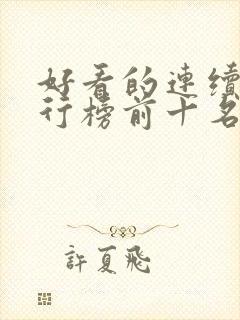 好看的連續
行榜前十名
許夏飛